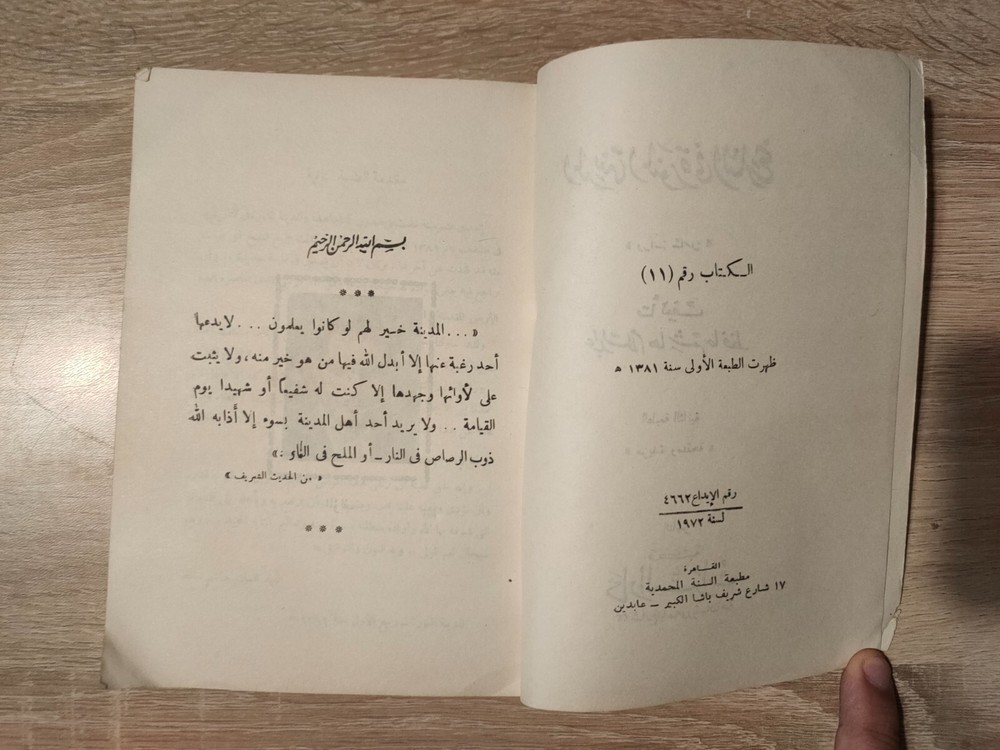 الكتاب رقم (١١)
ظهرت الطبعة الأولى سنة ١٣٨١ هـ
رقم الإيداع ٤٦٦٢
لسنة ١٩٧٢
القاهرة
مطبعة السنة المحمدية
١٧ شارع شريف باشا الكبير ــ عابدين
بسم الله الرحمن الرحيم
***
« ... المدينة خير لهم لو كانوا يعلمون ... لا يدعها
أحد رغبة عنها إلا أبدل الله فيها من هو خير منه، ولا يثبت
على لأوائها وجهدها إلا كنت له شفيعا أو شهيدا يوم
القيامة .. ولا يريد أحد أهل المدينة بسوء إلا أذابه الله
ذوب الرصاص فى النار ــ أو الملح فى الماء .»
« من الحديث الشريف »
***